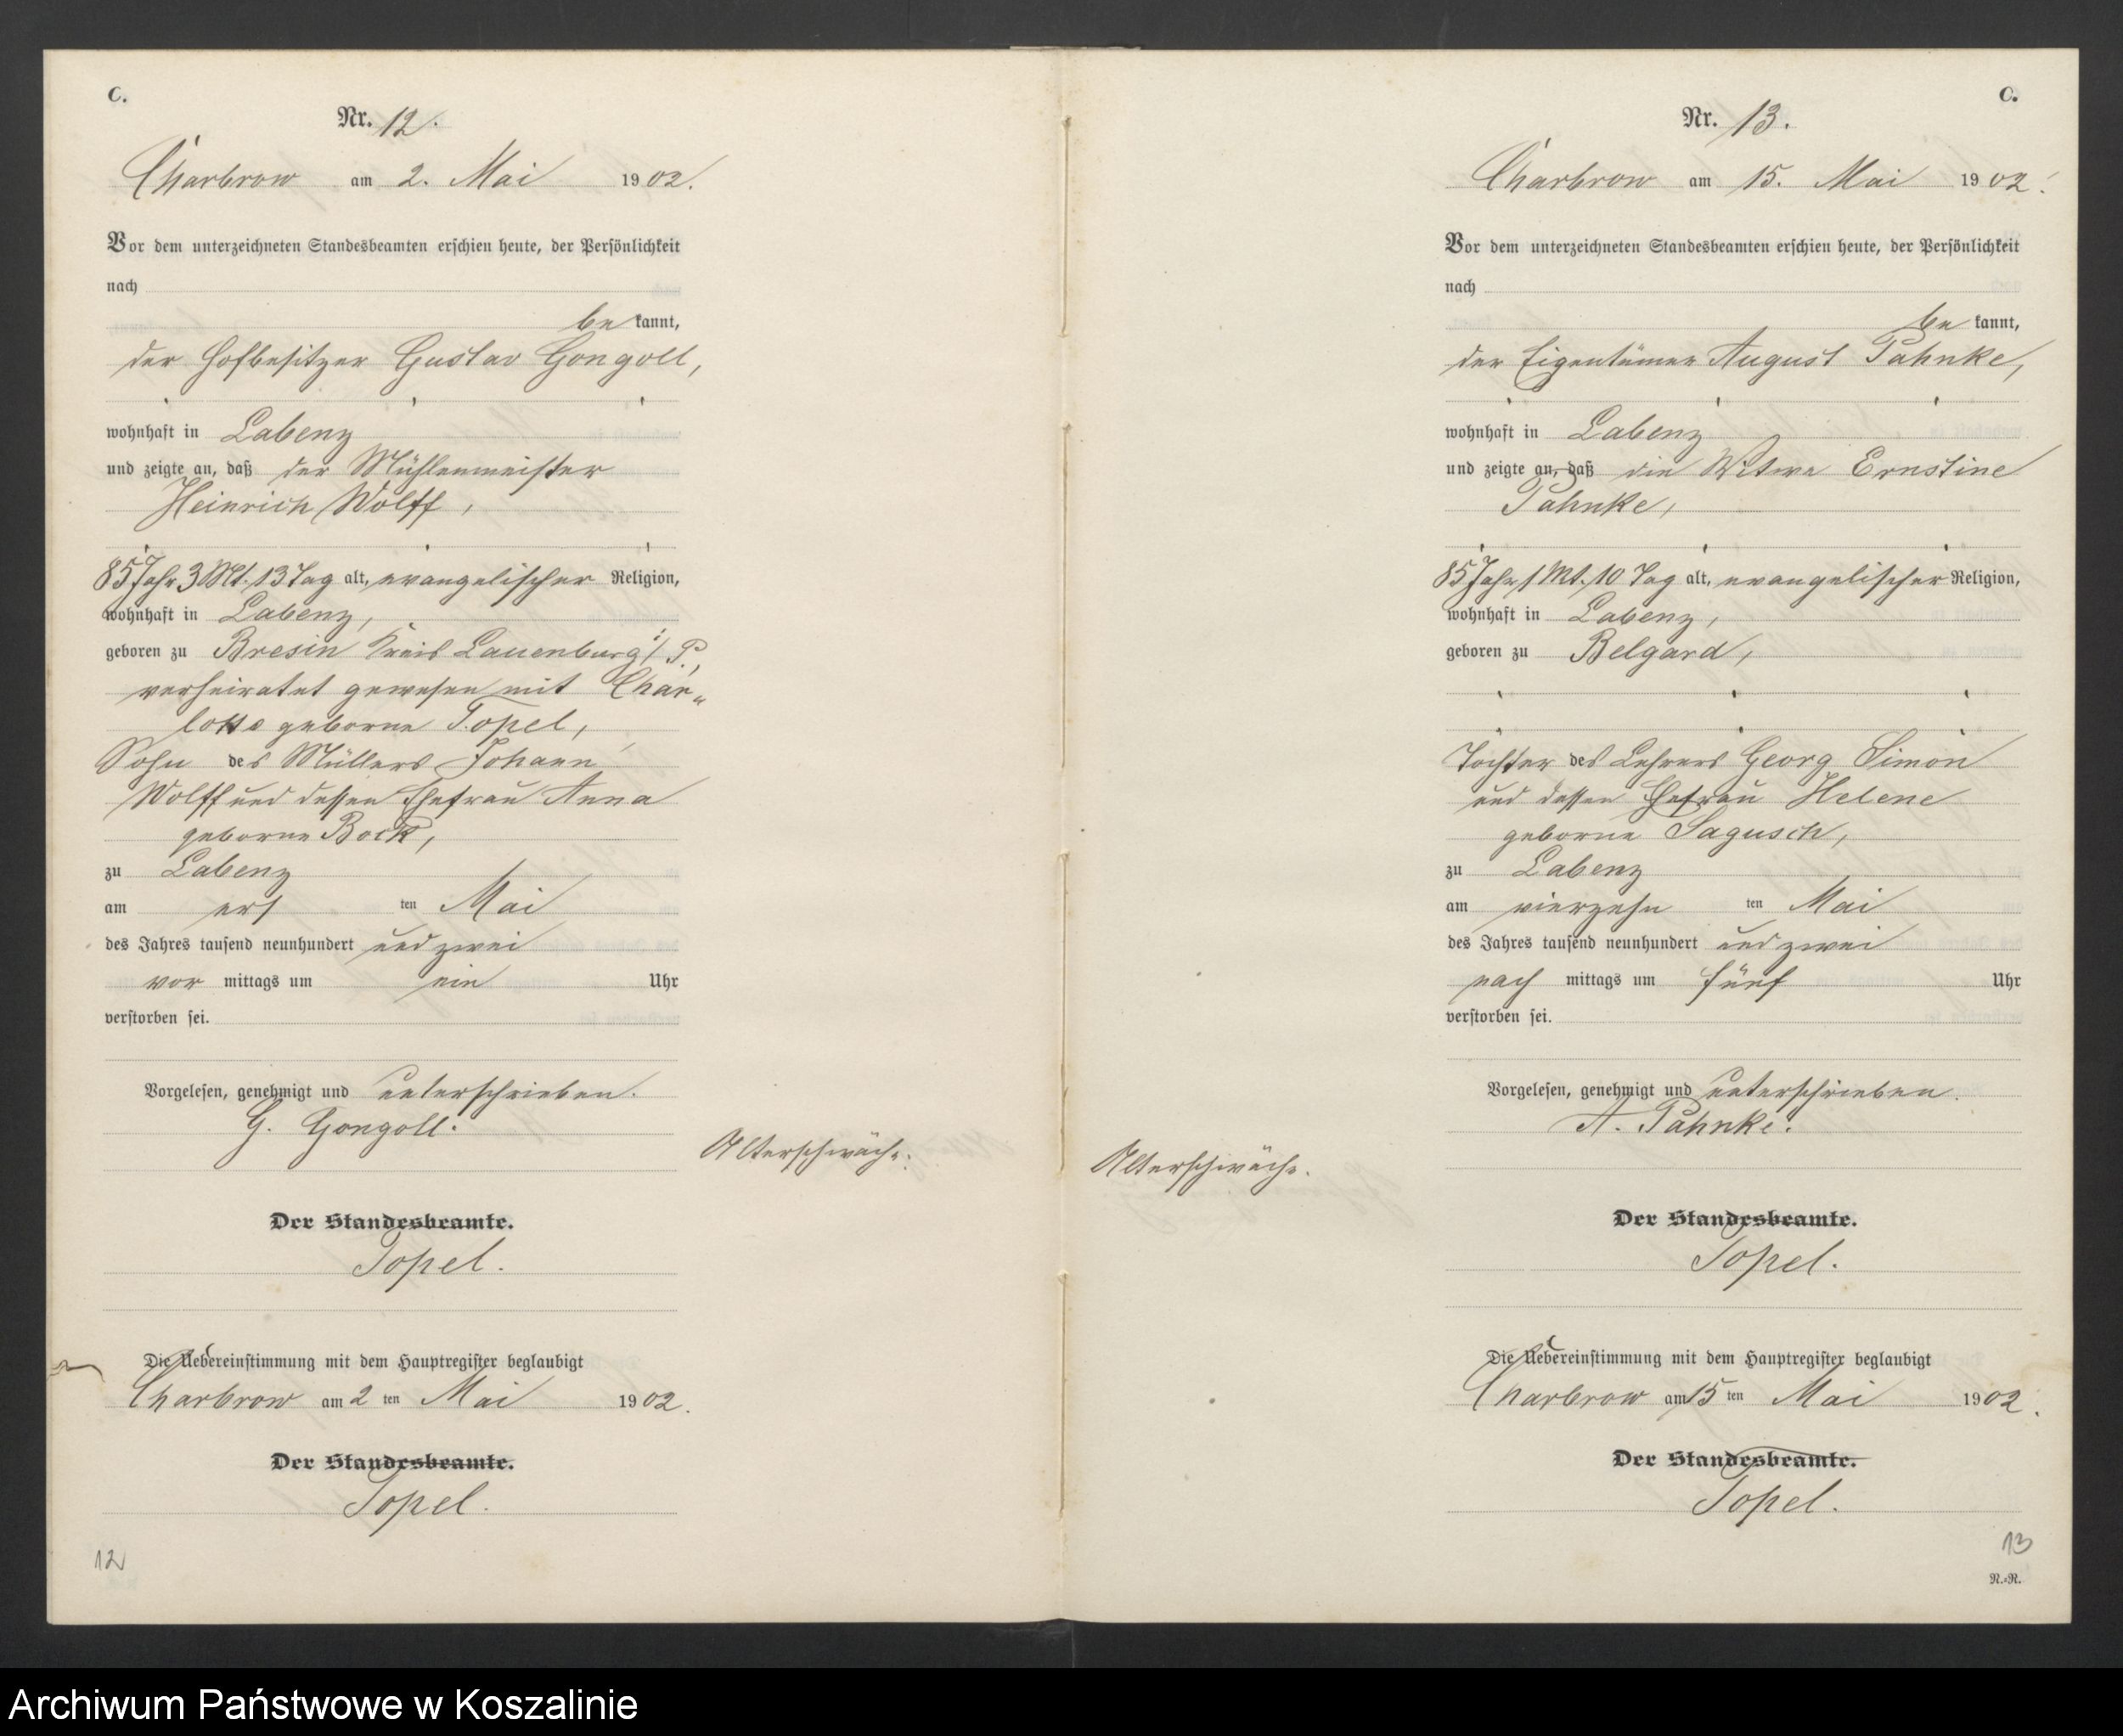 C.
Nr. 12.
Charbrow am 2. Mai 1902.
Vor dem unterzeichneten Standesbeamten erschien heute, der Persönlichkeit
nach
bekannt,
der Hofbesitzer Gustav Gongoll,
wohnhaft in Labenz
und zeigte an, daß der Mühlenmeister
Heinrich Wolff,
85 Jahr 3 Mt. 13 Tag alt, evangelischer Religion,
wohnhaft in Labenz,
geboren zu Bresin Kreis Lauenburg i/P.,
verheiratet gewesen mit Char-
lotte geborne Topel,
Sohn des Müllers Johann
Wolff und dessen Ehefrau Anna
geborne Bock,
zu Labenz
am ersten Mai
des Jahres tausend neunhundert und zwei
vormittags um ein Uhr
verstorben sei.
Vorgelesen, genehmigt und unterschrieben.
G. Gongoll.
Alterschwäche.
Der Standesbeamte.
Topel.
Die Uebereinstimmung mit dem Hauptregister beglaubigt
Charbrow am 2ten Mai 1902.
Der Standesbeamte.
Topel.
12
C.
Nr. 13.
Charbrow am 15. Mai 1902.
Vor dem unterzeichneten Standesbeamten erschien heute, der Persönlichkeit
nach
bekannt,
der Eigentümer August Pahnke,
wohnhaft in Labenz
und zeigte an, daß die Witwe Ernstine
Pahnke,
85 Jahr 1 Mt. 10 Tag alt, evangelischer Religion,
wohnhaft in Labenz,
geboren zu Belgard,
Tochter des Lehrers Georg Simon
und dessen Ehefrau Helene
geborne Sagusch,
zu Labenz
am vierzehnten Mai
des Jahres tausend neunhundert und zwei
nachmittags um fünf Uhr
verstorben sei.
Vorgelesen, genehmigt und unterschrieben.
A. Pahnke.
Alterschwäche.
Der Standesbeamte.
Topel.
Die Uebereinstimmung mit dem Hauptregister beglaubigt
Charbrow am 15ten Mai 1902.
Der Standesbeamte.
Topel.
13
N.-R.
Archiwum Państwowe w Koszalinie